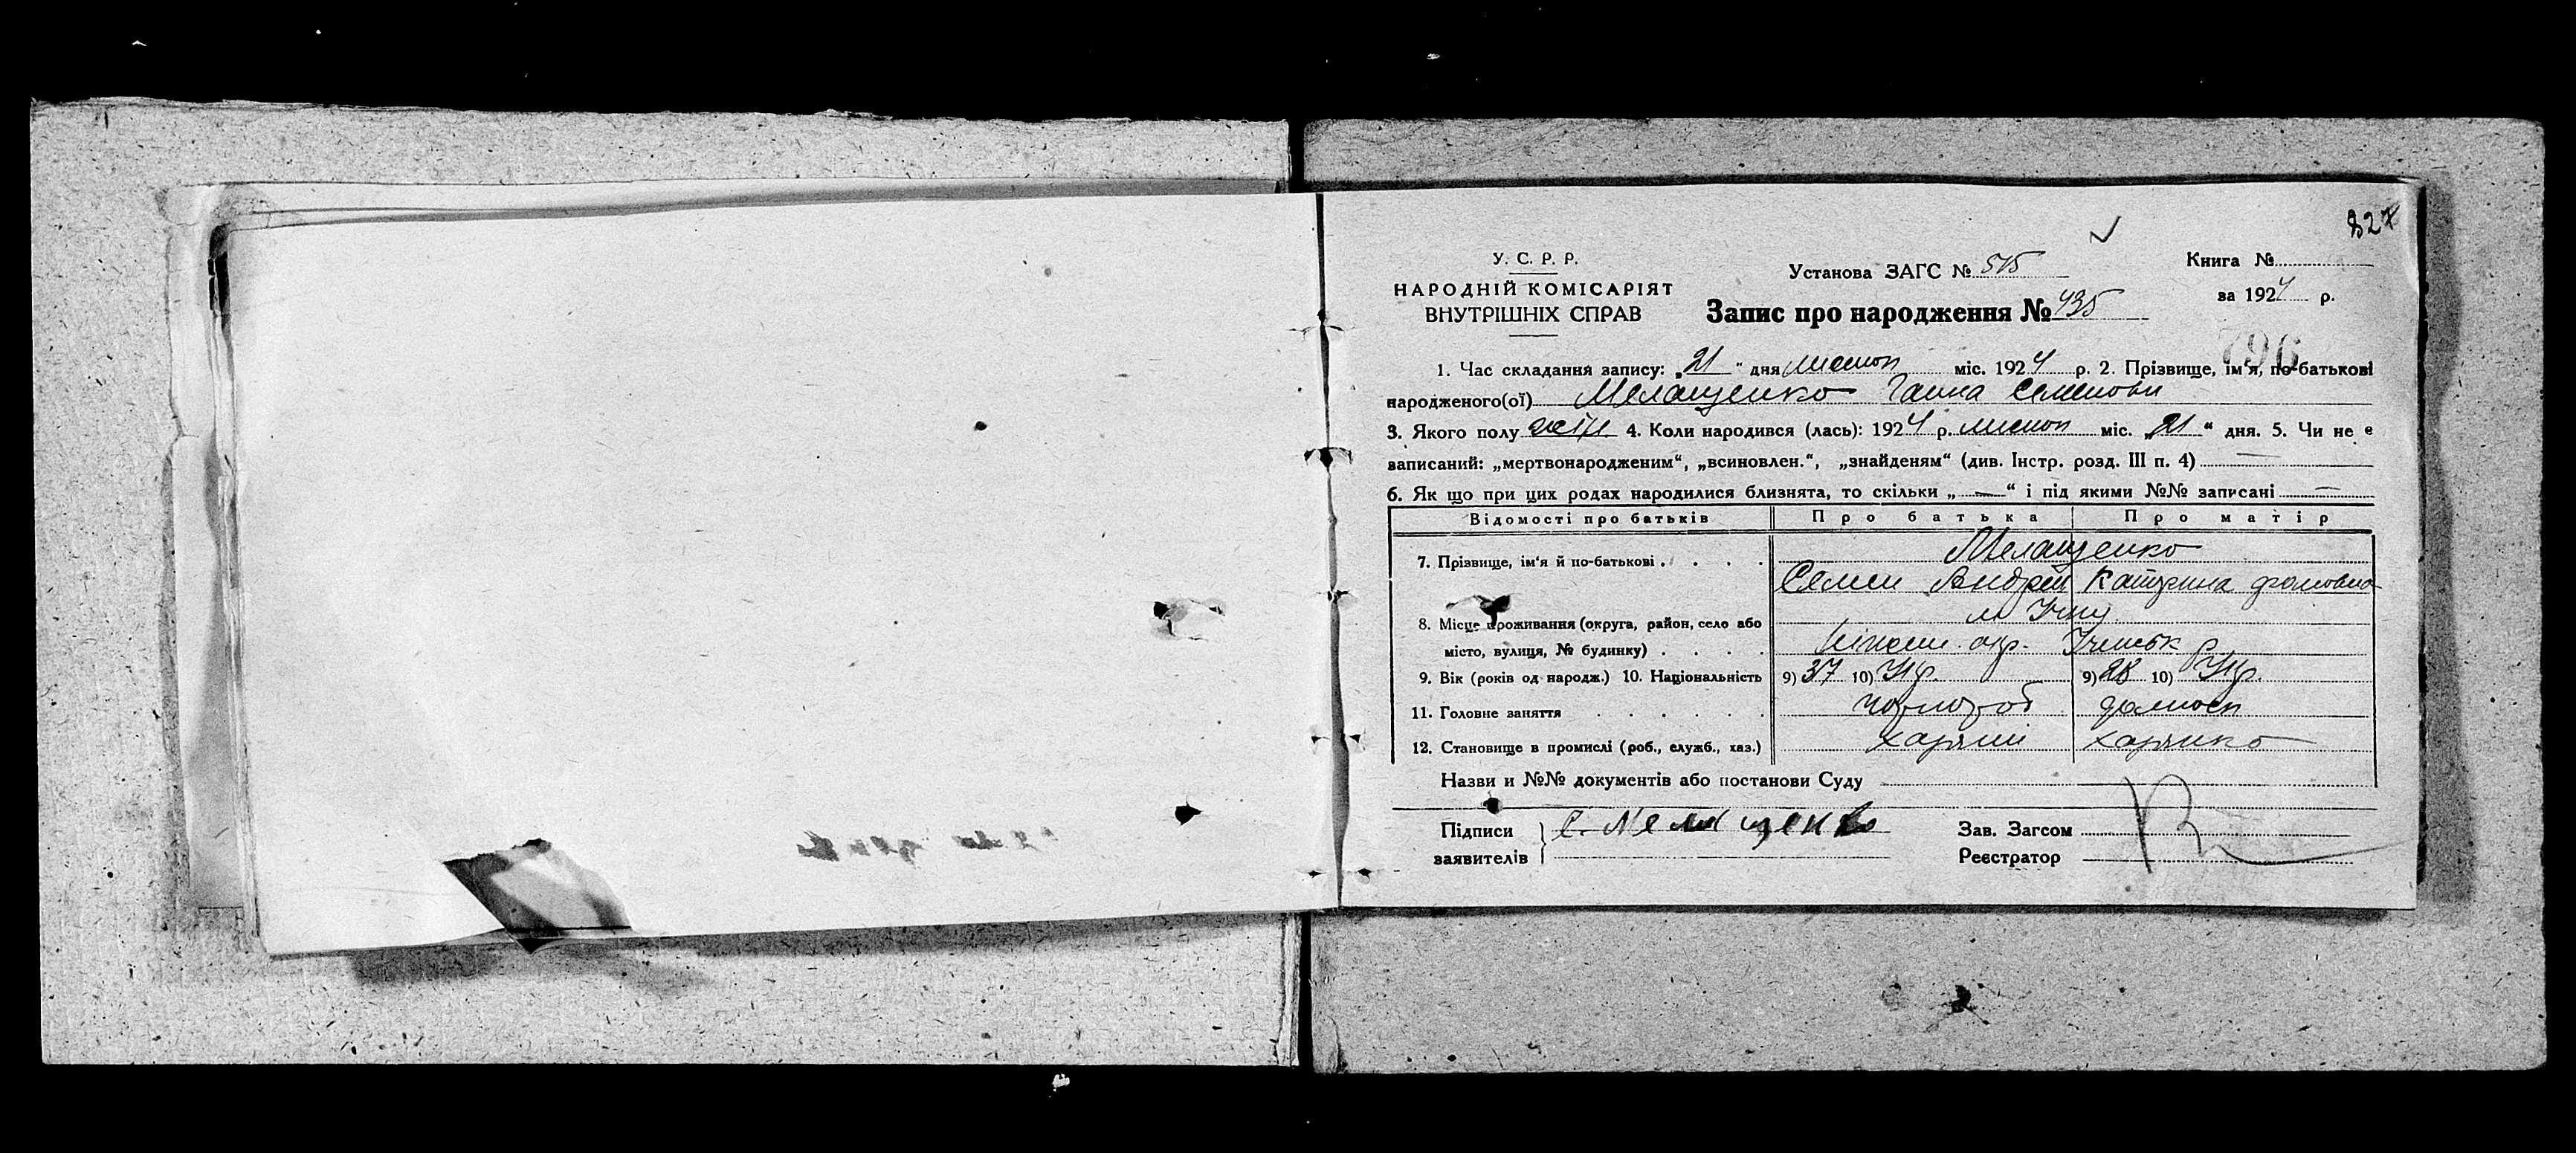 827
У. С. Р. Р.
НАРОДНІЙ КОМІСАРІЯТ
ВНУТРІШНІХ СПРАВ
Установа ЗАГС № 515
Книга №
за 1924 р.
Запис про народження № 435
796
1. Час складання запису: „21“ дня листоп міс. 1924 р. 2. Прізвище, ім'я, по-батькові
народженого(ої) Мелащенко Ганна Семеновн
3. Якого полу жін. 4. Коли народився (лась): 1924 р. листоп міс. „21“ дня. 5. Чи не є
записаний: „мертвонародженим“, „всиновлен.“, „знайденям“ (див. Інстр. розд. III п. 4) —
6. Як що при цих родах народилися близнята, то скільки „—“ і під якими №№ записані —
Відомості про батьків Про батька Про матір
7. Прізвище, ім'я й по-батькові Мелащенко
Семен Андрей Катерина
8. Місце проживання (округа, район, село або м
місто, вулиця, № будинку) окр.
9. Вік (років од народж.) 10. Національність 9) 37 10) Укр. 9) 28 10) Укр.
11. Головне заняття хлороб домосп
12. Становище в промислі (роб., служб., хаз.)
Назви и №№ документів або постанови Суду
Підписи С. Мелащенко Зав. Загсом
заявителів Реєстратор